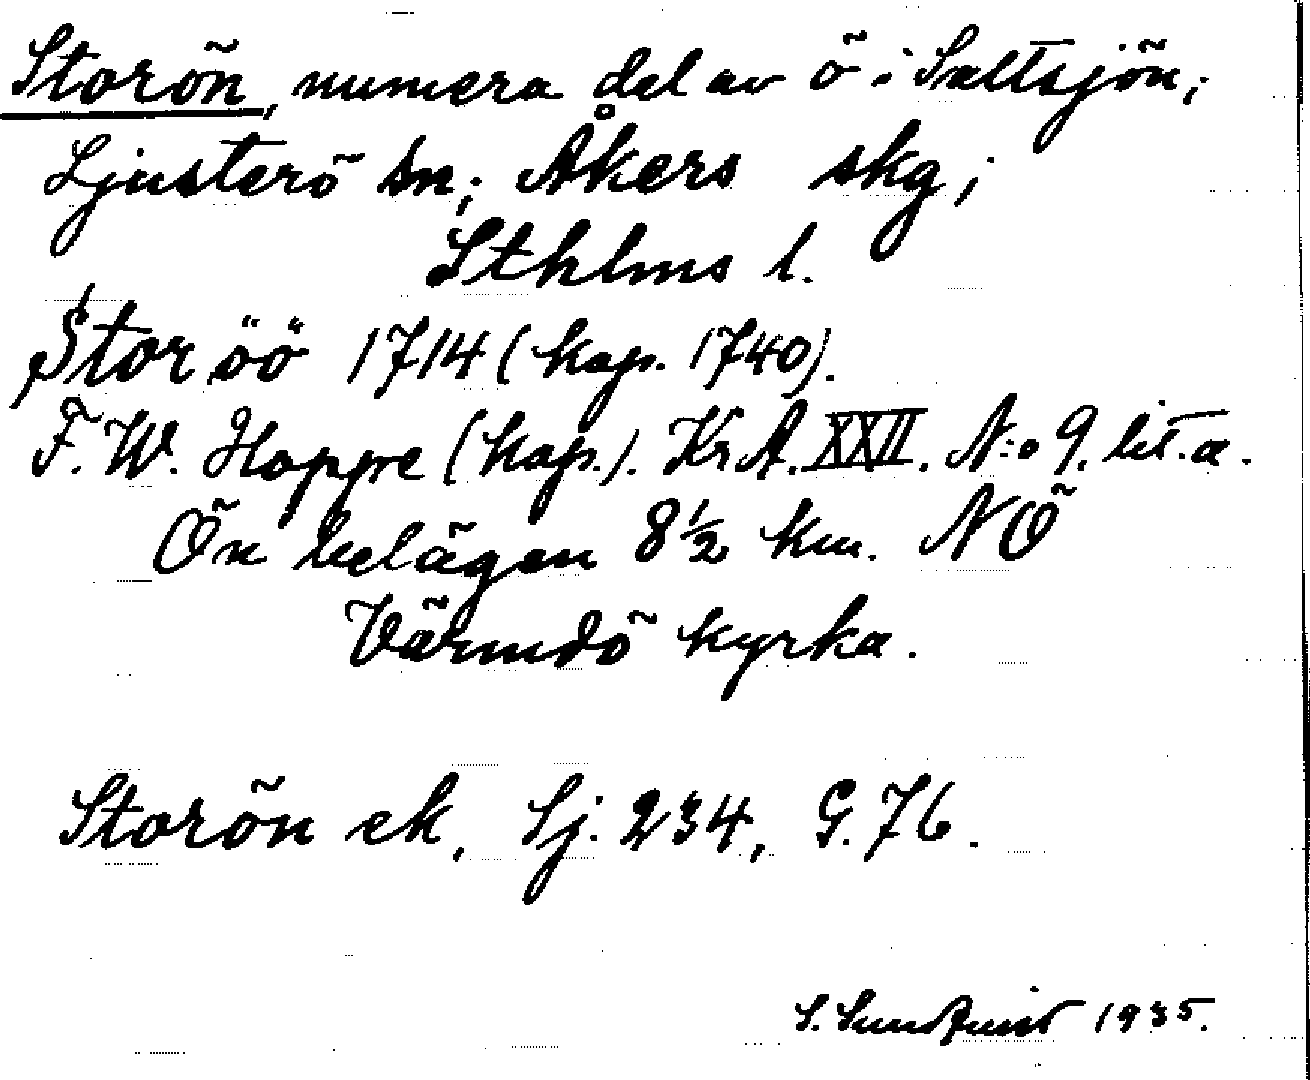 Storön, numera del av ö i Saltsjön;
Ljusterö sn; Åkers skg;
Sthlms l.
Stor öö 1714 (kop. 1740).
F. W. Hoppe (kop.). KrA. XXII. N:o 9. lit. a.
Ön belägen 8½ km. NÖ
Värmdö kyrka.
Storön ek, Sj. 234, G. 76.
S. Sundquist 1935.